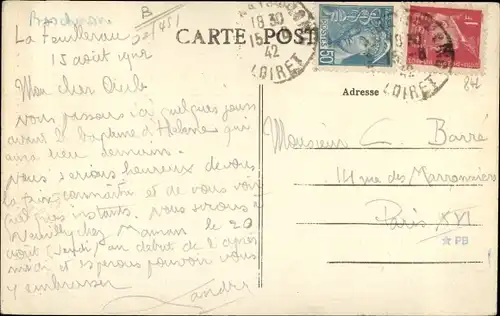 B
La Feuilleraie
15 août 1942
CARTE POSTALE
18 30
15
42
LOIRET
POSTES 50
1F
LOIRET
842
Adresse
Mon cher Oncle
nous passons ici quelques jours
avant le baptême d'Hélène qui
aura lieu demain.
Nous serions heureux de vous
la faire connaître et de vous voir
quelques instants. Nous serons à
Neuilly chez Maman le 20
août (jeudi) au début de l'après
midi et espérons pouvoir vous
y embrasser
André
Monsieur C. Barré
14 rue des Marronniers
Paris XVI
PB